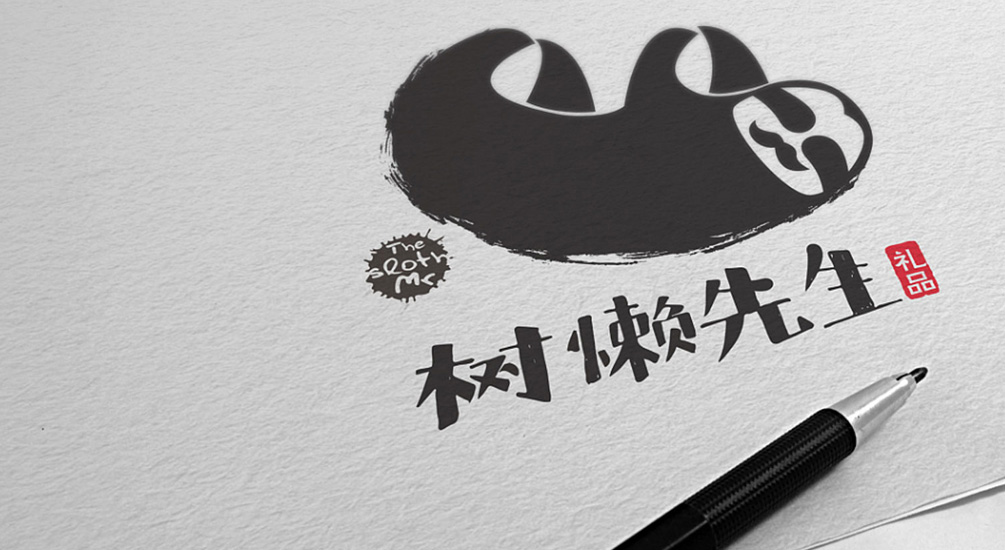 The
sloth
Mr
树懒先生
礼
品